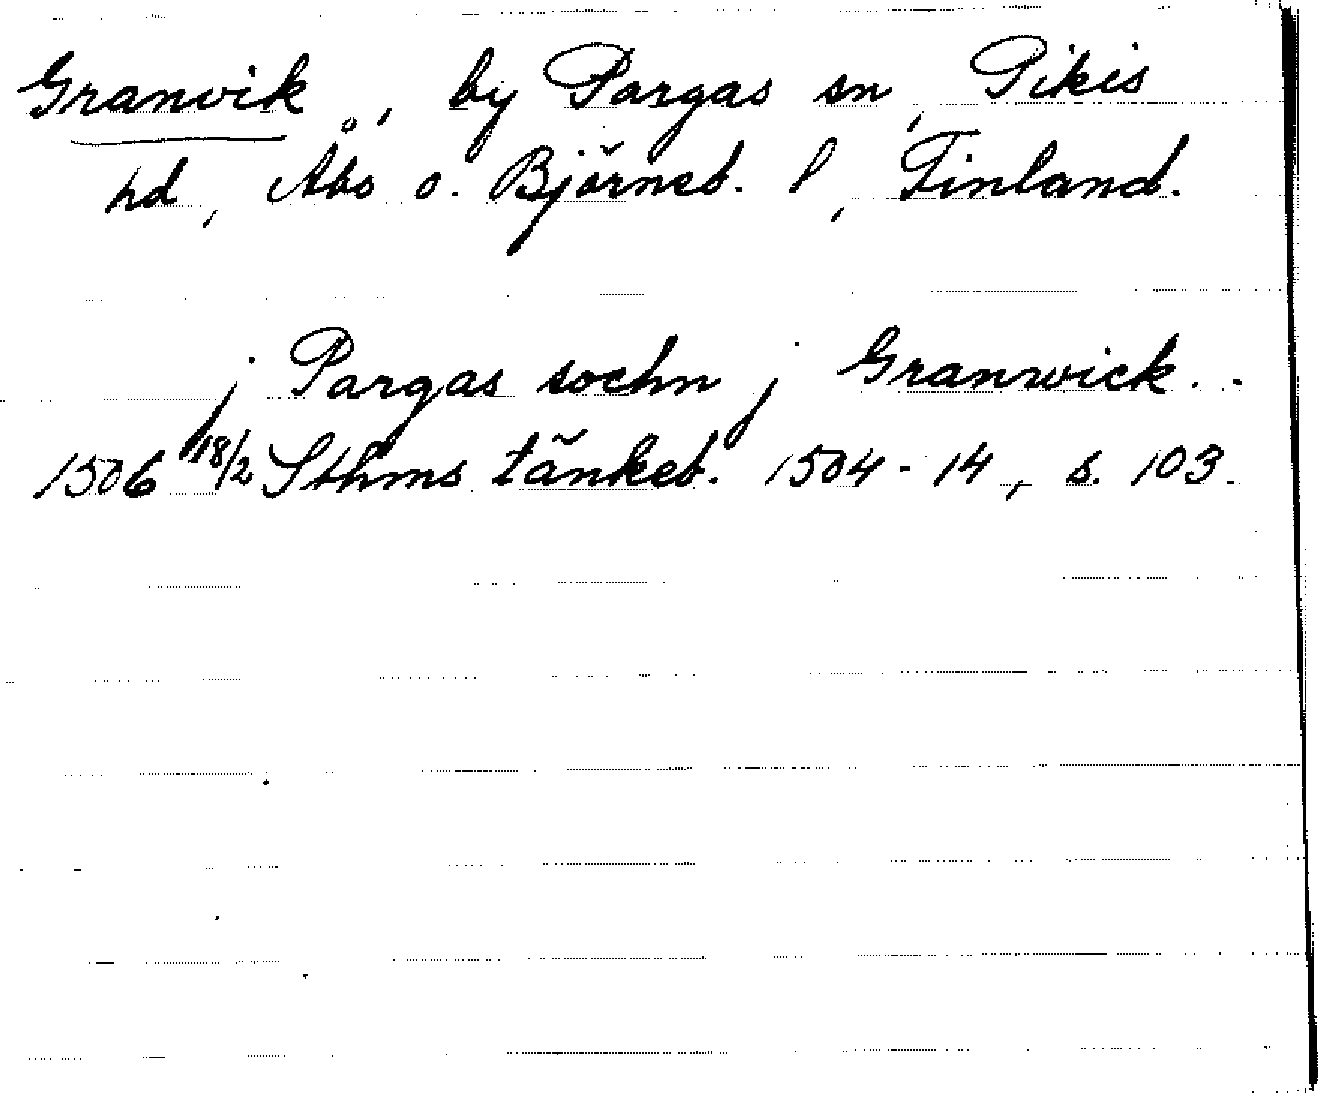 Granvik, by Pargas sn, Pikis
hd, Åbo o. Björneb. l, Finland.
j Pargas sochn j Granwick..
1506 18/2 Sthms tänkeb. 1504-14, s. 103.